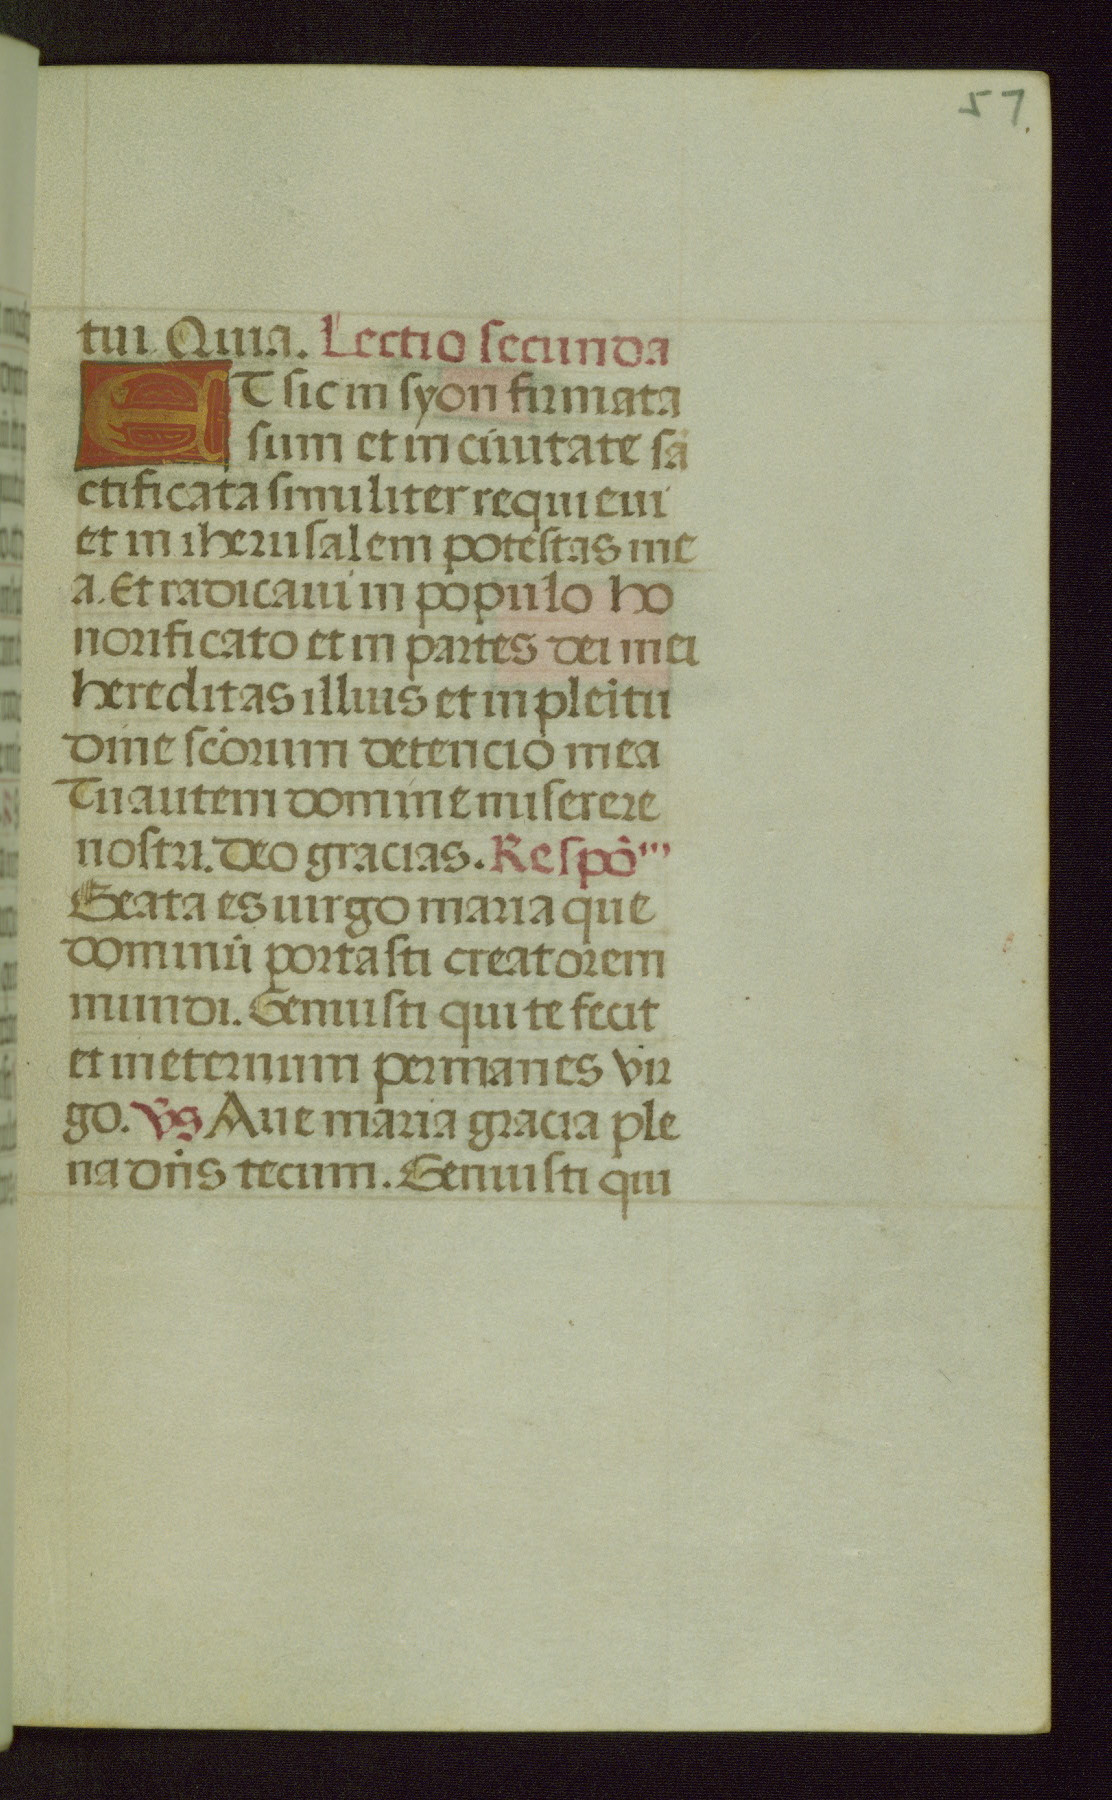 57.
tui Quia. Lectio secunda
ET sic in syon firmata
sum et in ciuitate sā
ctificata similiter requieui
et in iherusalem potestas me
a. Et radicaui in populo ho
norificato et in partes dei mei
hereditas illius et in pleitu
dine scōrum detencio mea
Tu autem domine miserere
nostri. Deo gracias. Respō
Beata es uirgo maria que
dominū portasti creatorem
mundi. Genuisti qui te fecit
et in eternum permanes vir
go. Vs Aue maria gracia ple
na dn̄s tecum. Genuisti qui